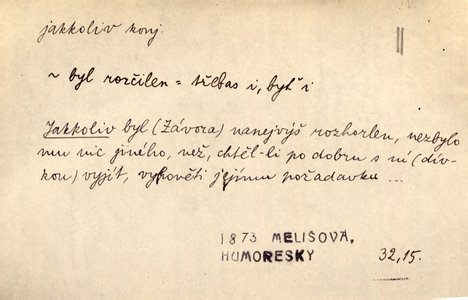 jakkoliv konj.
~ byl rozčilen = třebas i, byť i
Jakkoliv byl (Závora) nanejvýš rozhorlen, nezbylo
mu nic jiného, než, chtěl-li po dobru s ní (dív-
kou) vyjít, vyhověti jejímu požadavku ...
1873 MELIŠOVA,
HUMORESKY
32,15.